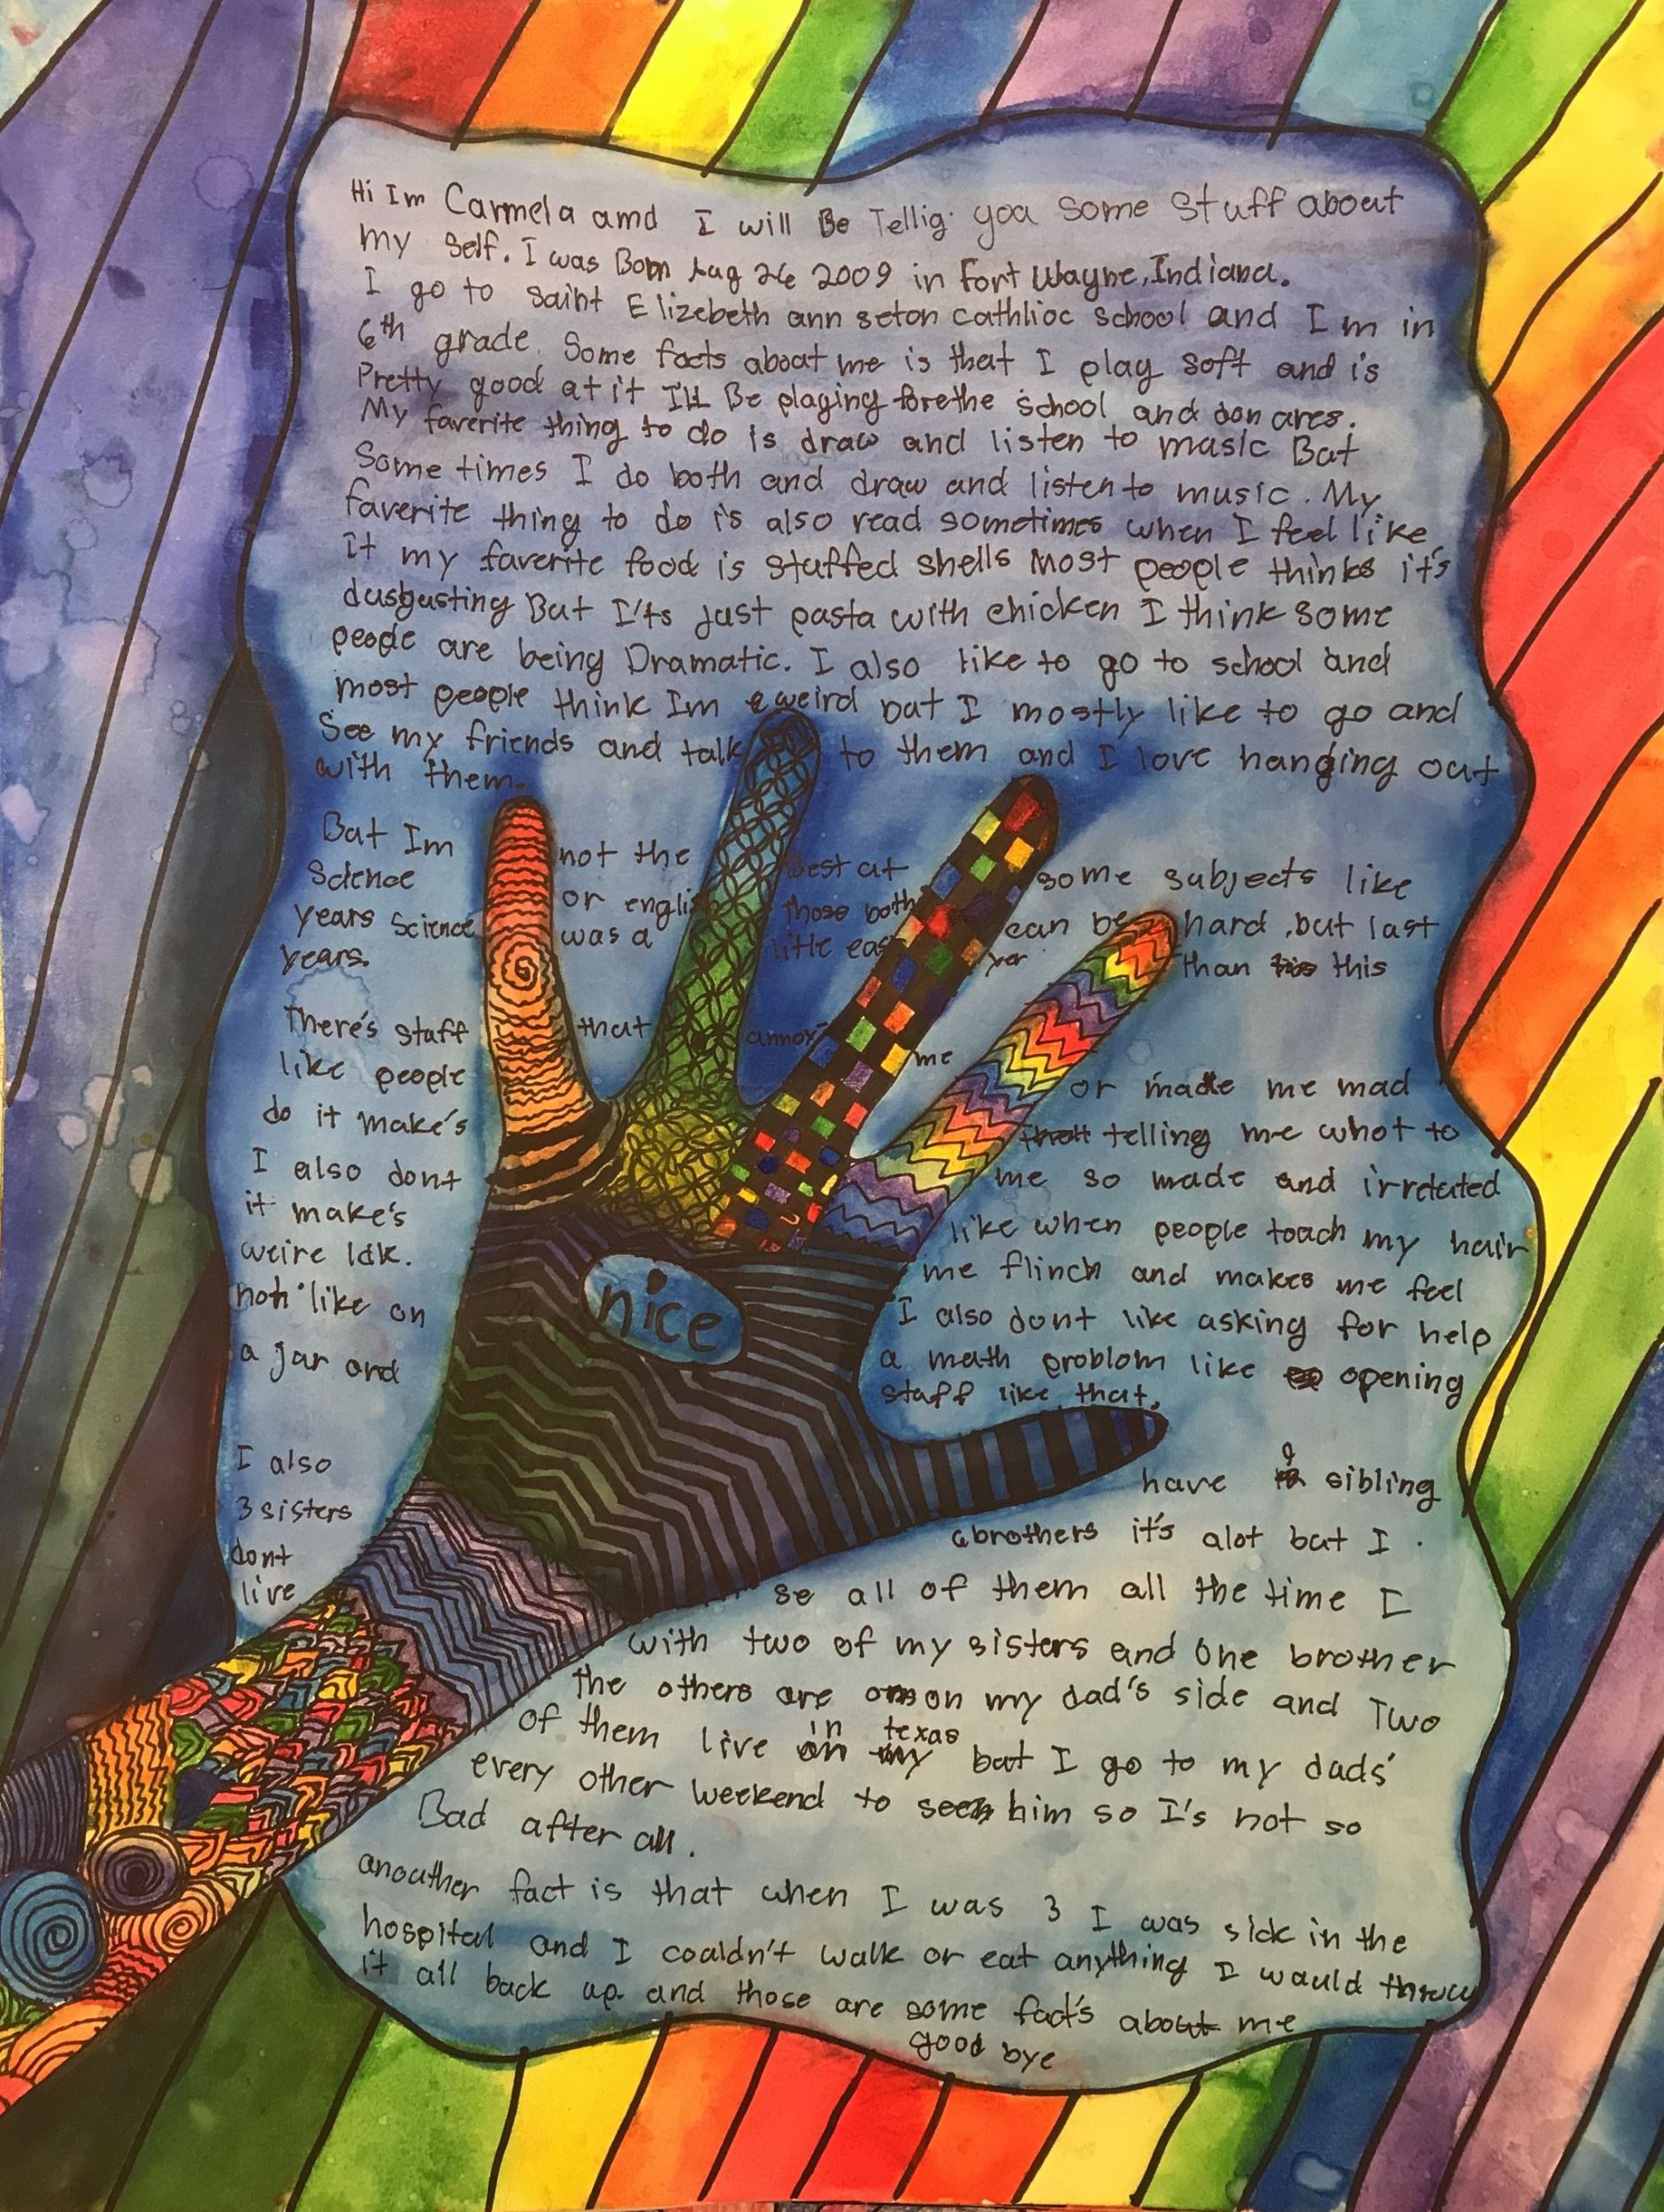 Hi Im Carmela amd I will Be Tellig you Some Stuff about
my self. I was Born Aug 26 2009 in Fort Wayne, Indiana.
I go to Saint Elizebeth ann seton cathlioc school and I m in
6th grade. Some facts about me is that I play soft and is
Pretty good at it I'll Be playing forethe school and don ares.
My faverite thing to do is draw and listen to music But
Some times I do both and draw and listen to music. My
faverite thing to do is also read sometimes when I feel like
it my faverite food is stuffed shells Most people thinks it's
dusgusting But I'ts just pasta with chicken I think some
peode are being Dramatic. I also like to go to school and
most people think Im weird but I mostly like to go and
See my friends and talk to them and I love hanging out
with them.
But Im not the best at some subjects like
Science or english those both can be hard, but last
years science was a little easyer than this
years.
There's stuff that annoy me or made me mad
like people telling me whot to
do it make's me so made and irretated
I also dont like when people touch my hair
it make's me flinch and makes me feel
weire Idk. I also dont like asking for help
not like on a math problom like opening
a jar and stuff like that.
I also have 9 sibling
3 sisters 6brothers it's alot but I
dont se all of them all the time I
live with two of my sisters and One brother
The others are on my dad's side and Two
of them live in texas but I go to my dads'
every other weekend to see him so I's not so
Bad after all.
anouther fact is that when I was 3 I was sick in the
hospital and I couldn't walk or eat anything I would throw
it all back up and those are some fact's about me
good bye
nice